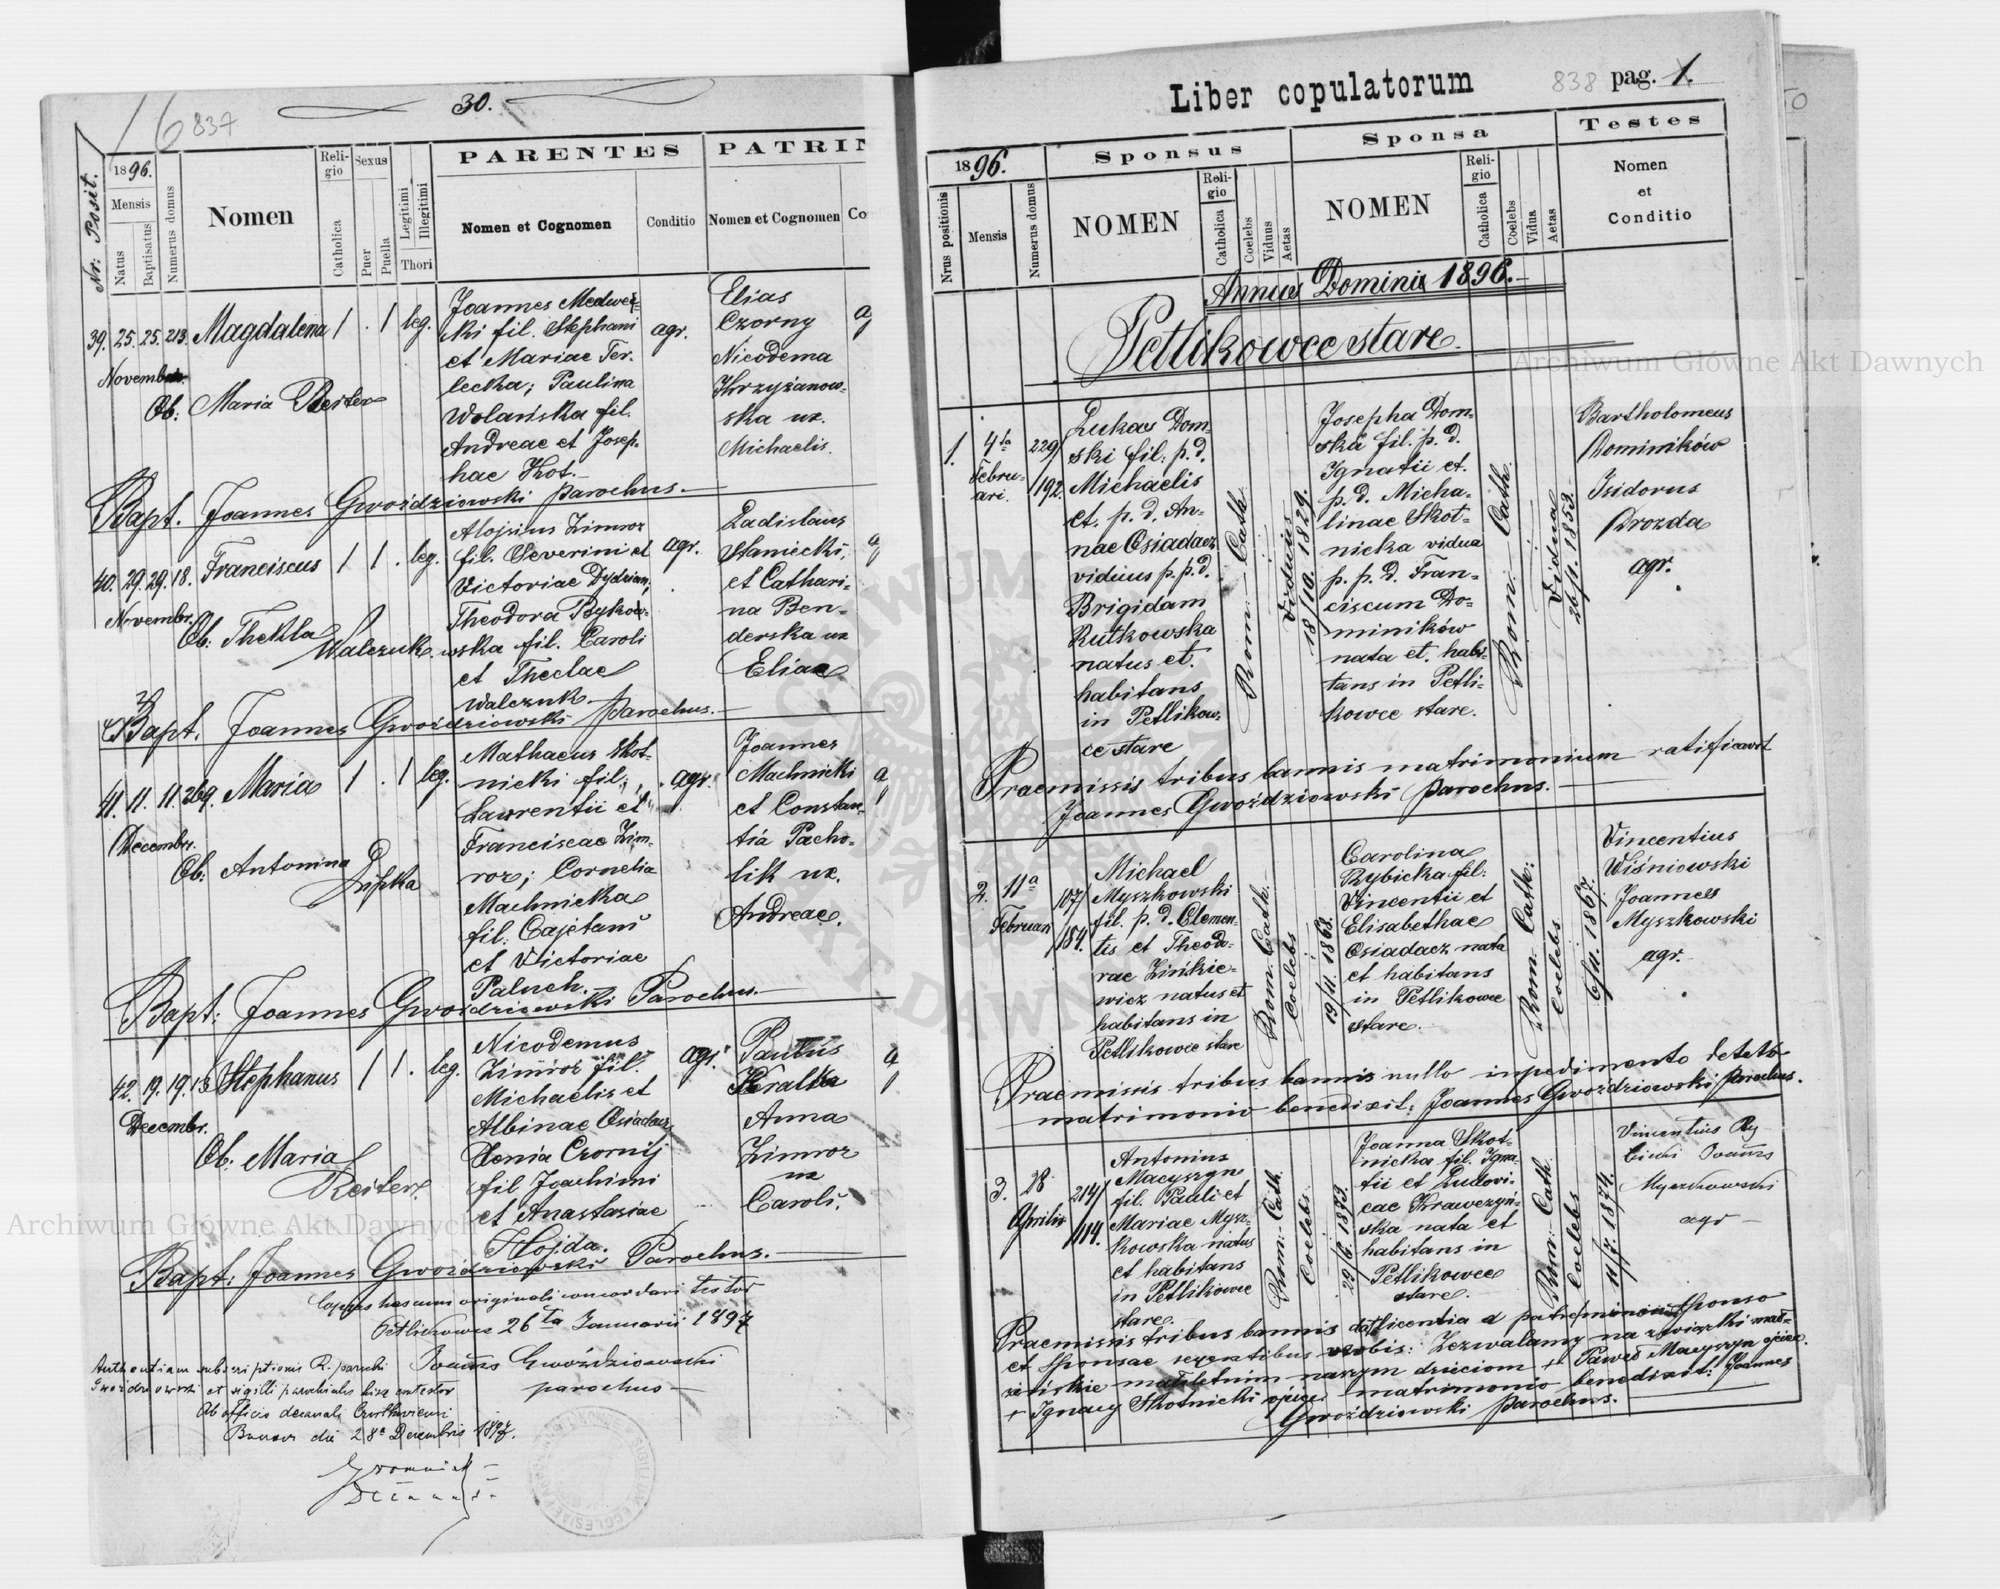 16 837
30.
Nr: Posit.
1896.
Mensis
Natus
Baptisatus
Numerus domus
Nomen
Religio
Catholica
Sexus
Puer
Puella
Legitimi
Illegitimi
Thori
PARENTES
Nomen et Cognomen
Conditio
PATRIN
Nomen et Cognomen
Co
39. 25. 25. 213. Magdalena 1 . 1 leg.
Novembr.
Ob: Maria Reiter
Joannes Medwec=
ki fil. Stephani
et Mariae Ter.
lecka; Paulina
Wolańska fil.
Andreae et Josep.
hae Kot.
agr.
Elias
Czorny
Nicodema
Krzyżanow=
ska ux.
Michaelis.
Bapt. Joannes Gwoździowski parochus.
40. 29. 29. 18. Franciscus 1 1 . leg.
Novembr.
Ob: Thekla
Walczuk.
Alojsius Zimroz
fil. Severini et
Victoriae Dydzian,
Theodora Bykow=
wska fil. Caroli
et Theclae
Walczuk
agr.
Ladislaus
Staniecki,
et Cathari=
na Ben=
derska ux
Eliae
Bapt. Joannes Gwoździowski parochus.
41. 11. 11. 269. Maria 1 . 1 leg.
Decembr.
Ob: Antonina
Lipka
Mathaeus Skot=
nicki fil.
Laurentii et
Franciscae Zim=
roz; Cornelia
Machnicka
fil: Cajetani
et Victoriae
Paluch.
agr.
Joannes
Machnicki
et Constan=
tia Pacho=
lik ux.
Andreae.
Bapt: Joannes Gwoździowski Parochus.
42. 19. 19. 13 Stephanus 1 1 . leg.
Decembr.
Ob: Maria
Reiter.
Nicodemus
Zimroz fil.
Michaelis et
Albinae Osiadacz
Xenia Czornij
fil Joachimi
et Anastasiae
Hojda.
agr
Paulus
Kralka
Anna
Zimroz
ux
Caroli.
Bapt: Joannes Gwoździowski Parochus.
Copias has cum originali concordari testor
Petlikowce 26ta Januarii 1897
Joannes Gwoździowski
parochus
Authentiam subscriptionis R. parochi
Gwoździowski et sigilli parochialis hisce contestor
Ab officio decanali Czortkoviensi
die 28a Decembris 1897.
Liber copulatorum
838 pag. 1.
1896.
Nrus positionis
Mensis
Numerus domus
Sponsus
NOMEN
Religio
Catholica
Coelebs
Viduus
Aetas
Sponsa
NOMEN
Religio
Catholica
Coelebs
Vidua
Aetas
Testes
Nomen
et
Conditio
Annus Domini 1896.
Petlikowce stare.
1. 4ta
Februari.
229/
/192.
Lukas Dom=
ski fil: p. d.
Michaelis
et. p. d. An=
nae Osiadacz
viduus p. p. d.
Brigidam
Rutkowska
natus et.
habitans
in Petlikow=
ce stare
Rom. Cath.
Viduus
18/10. 1829.
Josepha Dom=
ska fil. p. d.
Ignatii et.
p. d. Micha=
linae Skot=
nicka vidua
p. p. d. Fran=
ciscum Do=
miników
nata et. habi=
tans in Petli=
kowce stare.
Rom. Cath.
Vidua
26/1. 1853.
Bartholomeus
Dominików
Isidorus
Drozda
agr.
Praemissis tribus bannis matrimonium ratificavit
Joannes Gwoździowski parochus.
2. 11a
Februari
107/
/184.
Michael
Myszkowski
fil. p. d. Clemen=
tis et Theodo=
rae Zińkie=
wicz natus et
habitans in
Petlikowce stare
Rom. Cath.
Coelebs
19/11. 1868.
Carolina
Rybicka fil:
Vincentii et
Elisabethae
Osiadacz nata
et habitans
in Petlikowce
stare.
Rom. Cath:
Coelebs
6/11. 1867.
Vincentius
Wiśniowski
Joannes
Myszkowski
agr.
Praemissis tribus bannis nullo inpedimento detecto
matrimonio benedixit: Joannes Gwoździowski parochus.
3. 28
Aprilis
214/
/114.
Antonius
Macyszyn
fil. Pauli et
Mariae Mysz=
kowska natus
et habitans
in Petlikowce
stare.
Rom. Cath.
Coelebs.
29/6. 1873
Joanna Skot=
nicka fil. Igna=
tii et Ludovi=
cae Krawczyń=
ska nata et
habitans in
Petlikowce
stare.
Rom: Cath
Coelebs
11/7. 1874.
Vincentius Ry
bicki Joannes
Myszkowski
agr
Praemissis tribus bannis licentia a patre sponso
et sponsae sequentibus verbis: Zezwalamy na związki mał=
żeńskie małoletnim naszym dzieciom + Paweł Macyszyn ojciec
+ Ignacy Skotnicki ojciec matrimonio benedixit: Joannes
Gwoździowski parochus.
Archiwum Główne Akt Dawnych
Archiwum Główne Akt Dawnych